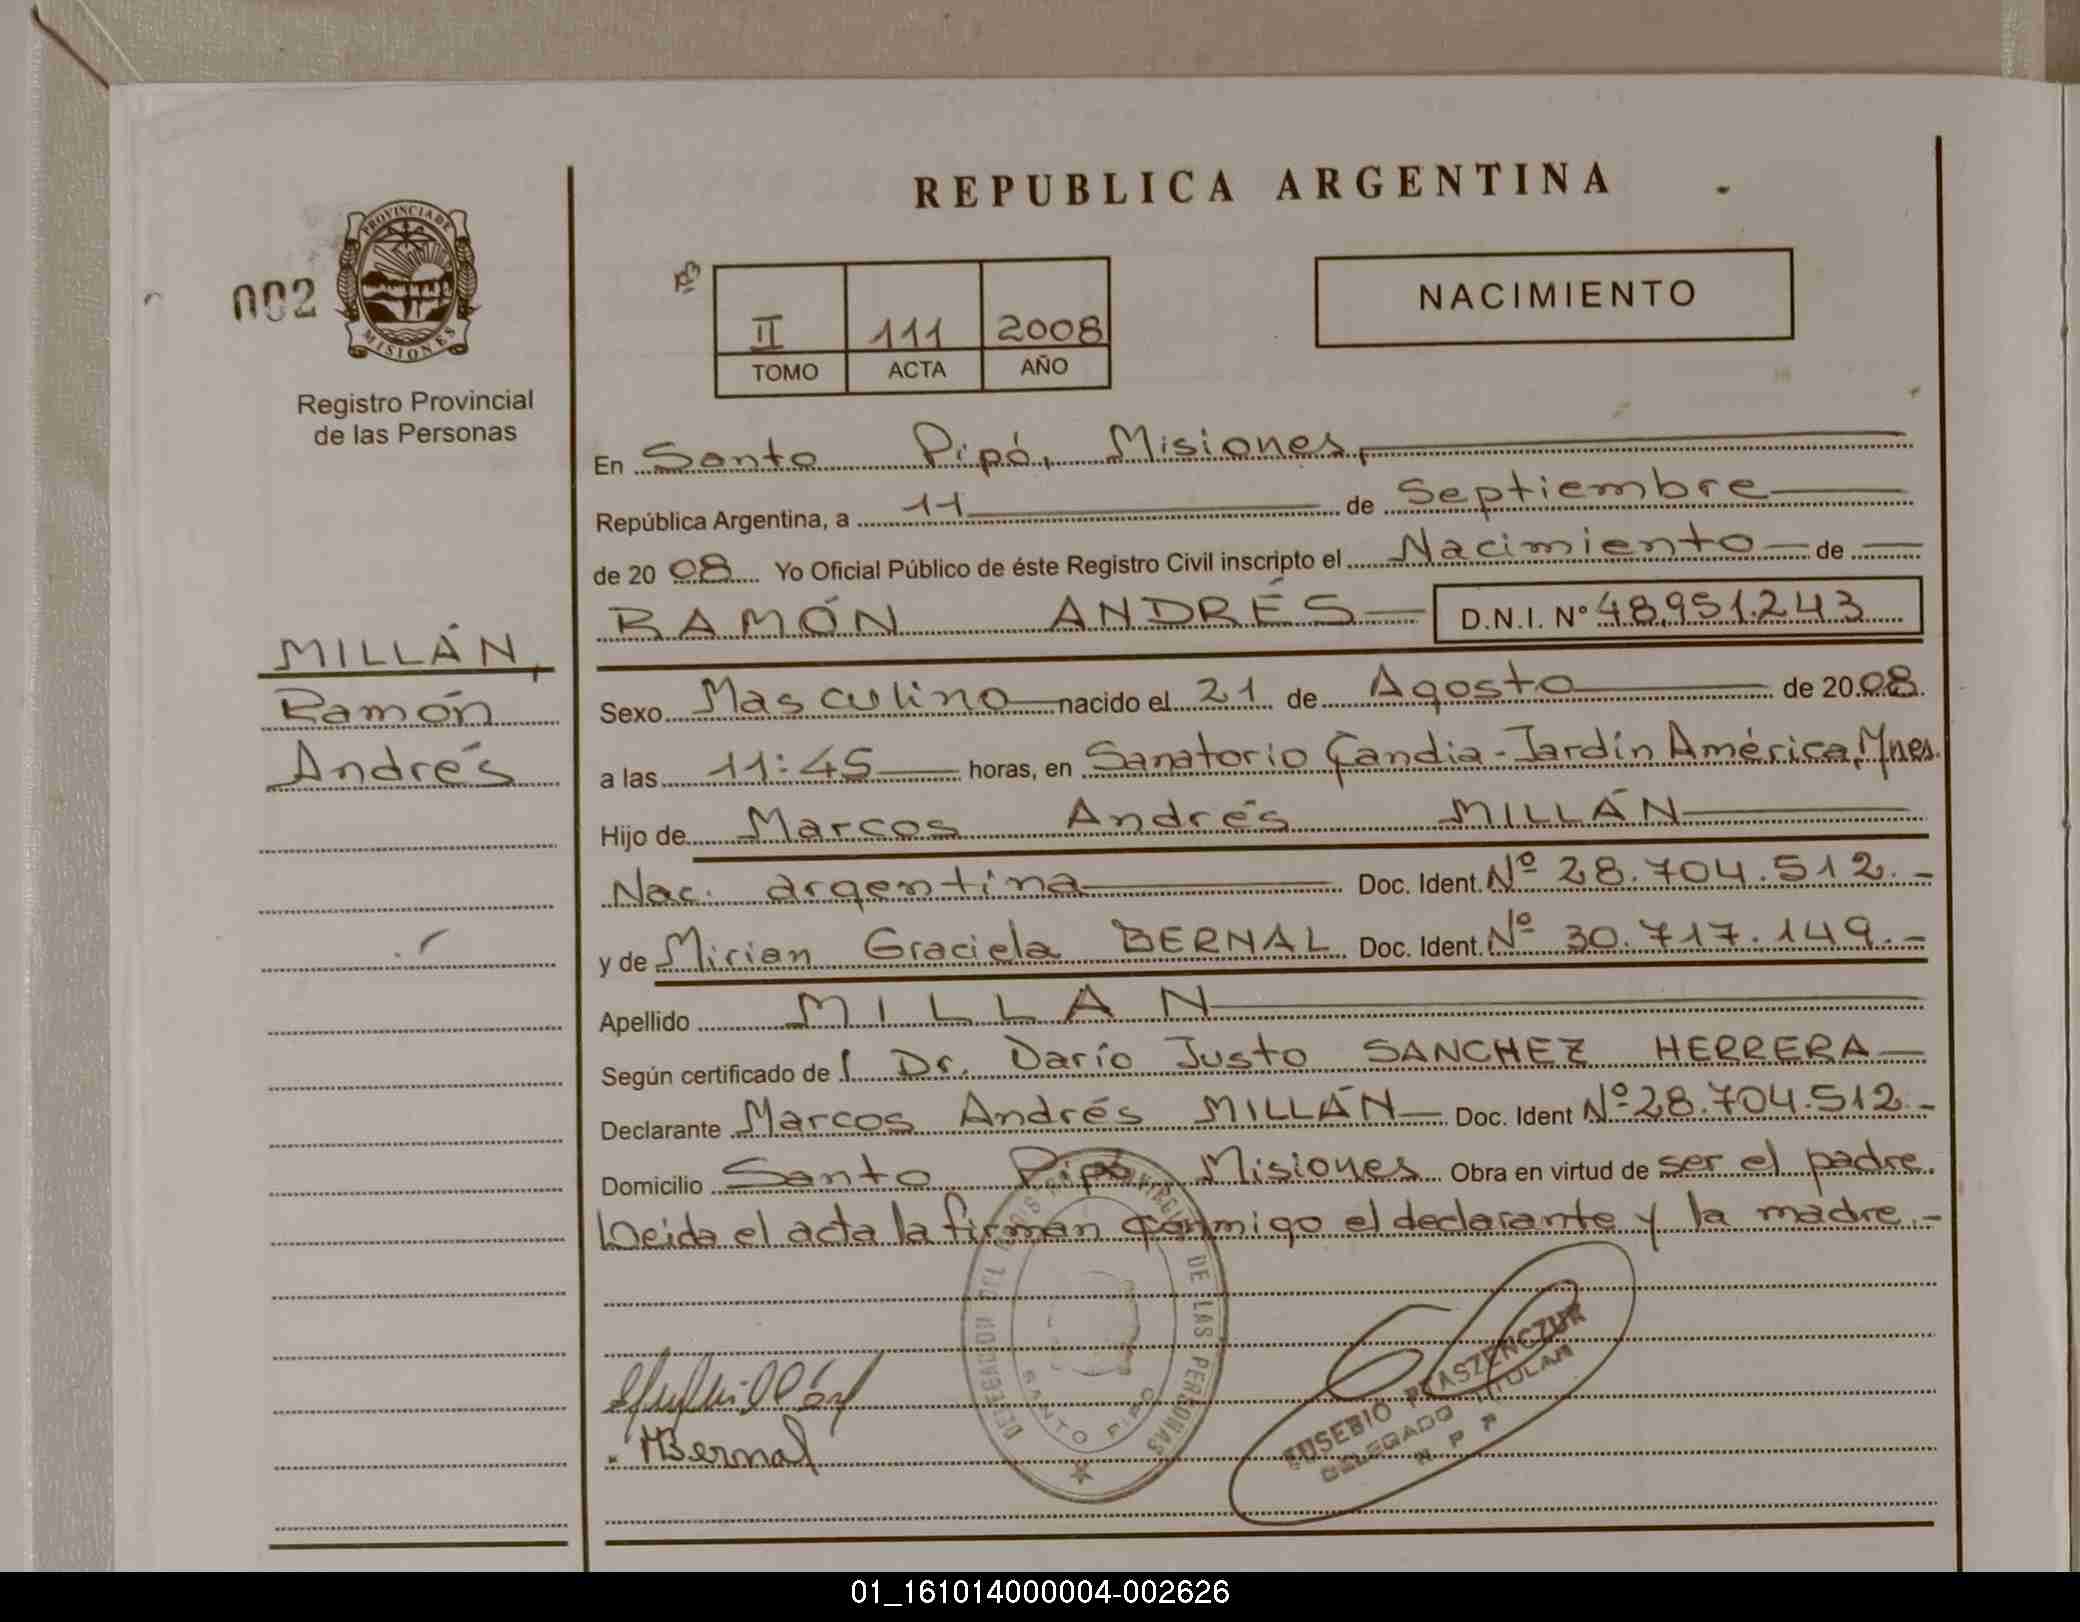 REPUBLICA ARGENTINA
PROVINCIA DE
MISIONES
002
Registro Provincial
de las Personas
Nº
II 111 2008
TOMO ACTA AÑO
NACIMIENTO
En Santo Pipó, Misiones,
República Argentina, a 11 de Septiembre
de 20 08 Yo Oficial Público de éste Registro Civil inscripto el Nacimiento de
RAMÓN ANDRÉS D.N.I. Nº 48.951.243
MILLÁN,
Ramón
Andrés
Sexo Masculino nacido el 21 de Agosto de 20 08
a las 11:45 horas, en Sanatorio Candia - Jardín América, Mnes.
Hijo de Marcos Andrés MILLÁN
Nac. argentina Doc. Ident. Nº 28.704.512.-
y de Mirian Graciela BERNAL Doc. Ident. Nº 30.717.149.-
Apellido MILLAN
Según certificado de l Dr. Darío Justo SANCHEZ HERRERA
Declarante Marcos Andrés MILLÁN Doc. Ident Nº 28.704.512.-
Domicilio Santo Pipó Misiones Obra en virtud de ser el padre.
Leida el acta la firman conmigo el declarante y la madre.-
DE LAS PERSONAS
SANTO PIPO
MBernal
EUSEBIO PRASZENCZUK
DELEGADO TITULAR
R P P
01_161014000004-002626